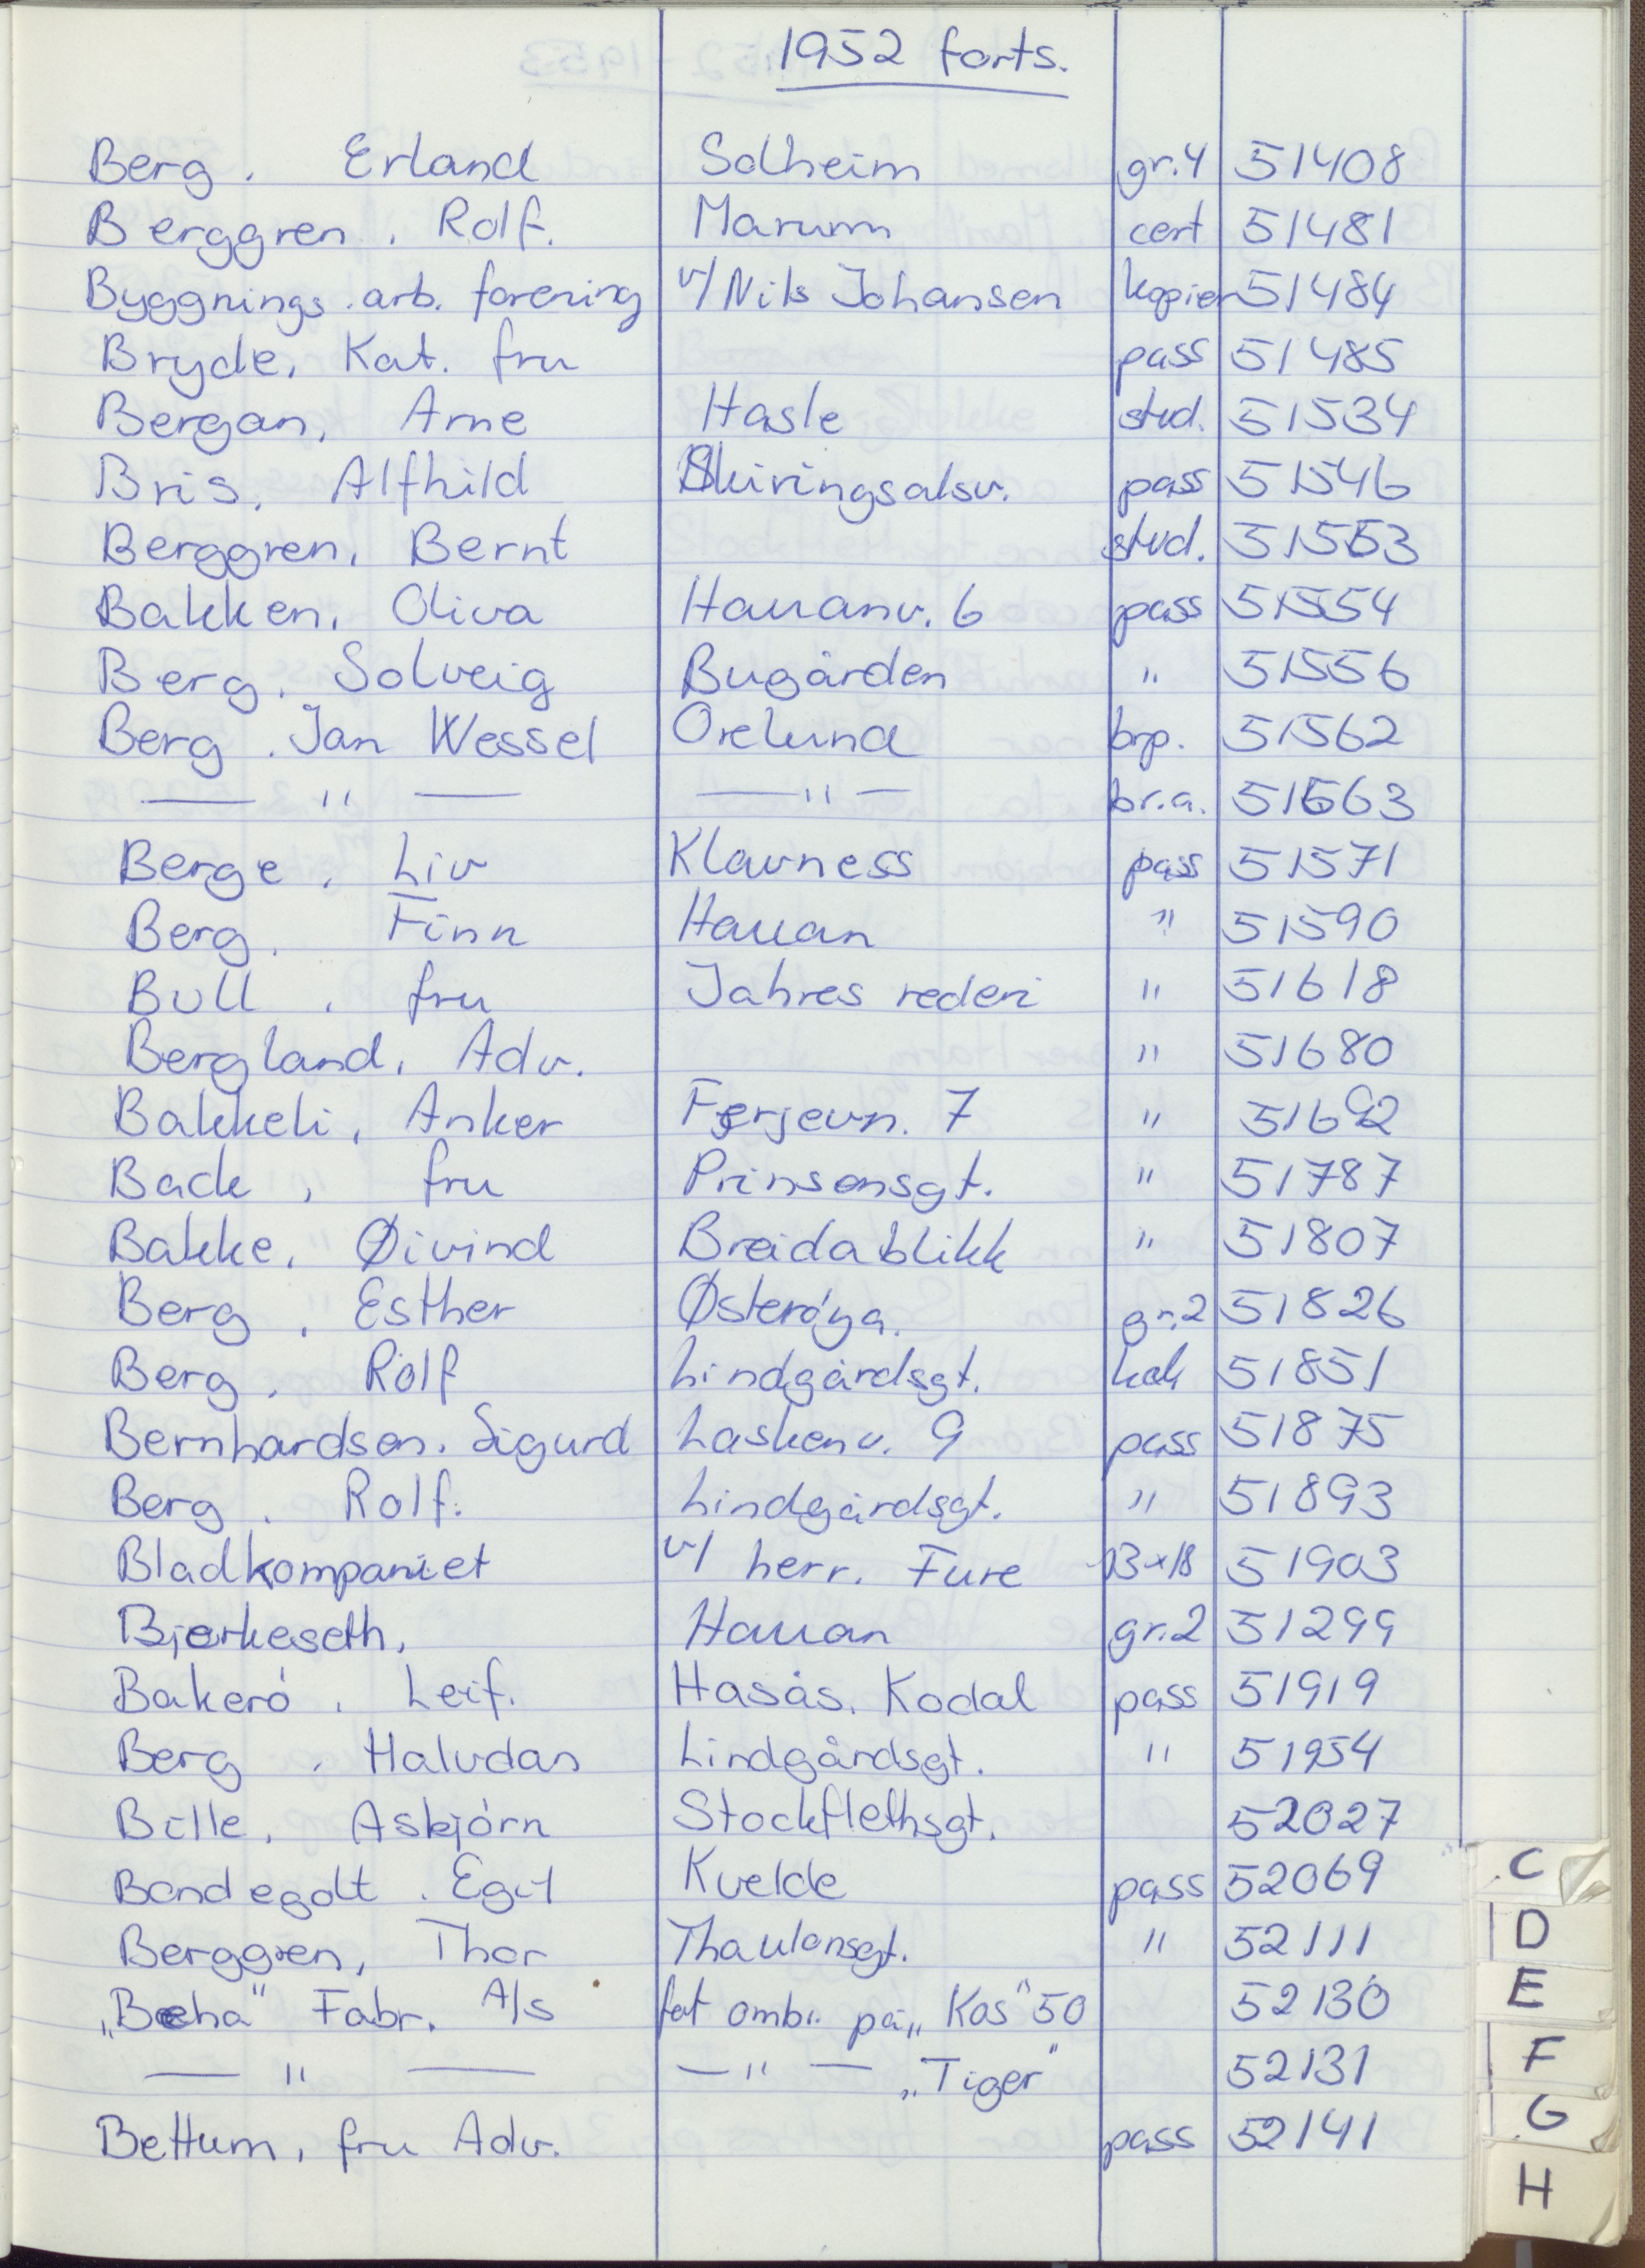 1952 forts.
Berg. Erland Solheim gr.4 51408
Berggren. Rolf. Marum cert 51481
Byggnings.arb. forening v/ Nils Johansen kopier 51484
Bryde, Kat. fru pass 51485
Bergan, Arne Hasle stud. 51534
Bris, Alfhild Skiringsalsv. pass 51546
Berggren, Bernt stud. 51553
Bakken, Oliva Hauanv. 6 pass 51554
Berg. Solveig Bugården " 51556
Berg. Jan Wessel Orelund brp. 51562
— " — — " — br.a. 51563
Berge, Liv Klavness pass 51571
Berg. Finn Hauan " 51590
Bull, fru Jahres rederi " 51618
Bergland, Adv. " 51680
Bakkeli, Anker Ferjevn. 7 " 51692
Back, fru Prinsensgt. " 51787
Bakke, Øivind Breidablikk " 51807
Berg, Esther Østerøya. gr.2 51826
Berg, Rolf Lindgårdsgt. kok 51851
Bernhardsen. Sigurd Laskenv. 9 pass 51875
Berg. Rolf. Lindgårdsgt. " 51893
Bladkompaniet v/ herr. Fure 13x18 51903
Bjerkeseth, Hauan gr.2 51299
Bakerø. Leif. Hasås. Kodal pass 51919
Berg. Halvdan Lindgårdsgt. " 51954
Bille, Asbjørn Stockflethsgt. 52027
Bondegolt. Egil Kvelde pass 52069
Berggren, Thor Thaulowsgt. " 52111
„Beha" Fabr. A/s fot ombr. på „Kos" 50 52130
— " — — " — „Tiger" 52131
Bettum, fru Adv. pass 52141
C
D
E
F
G
H